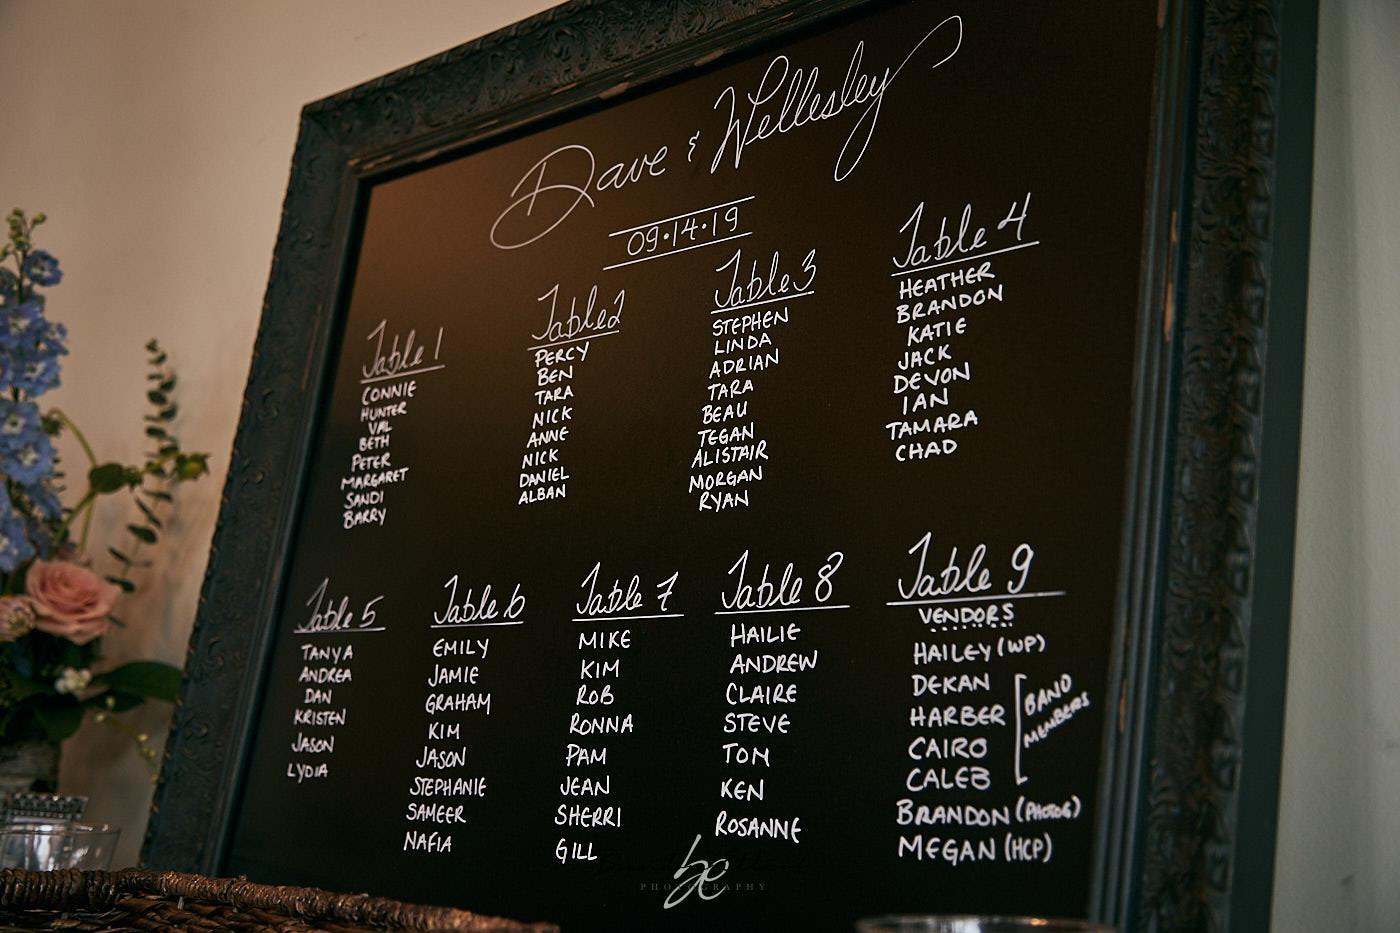 Dave & Wellesley
09•14•19
Table 1
CONNIE
HUNTER
VAL
BETH
PETER
MARGARET
SANDI
BARRY
Table 2
PERCY
BEN
TARA
NICK
ANNE
NICK
DANIEL
ALBAN
Table 3
STEPHEN
LINDA
ADRIAN
TARA
BEAU
TEGAN
ALISTAIR
MORGAN
RYAN
Table 4
HEATHER
BRANDON
KATIE
JACK
DEVON
IAN
TAMARA
CHAD
Table 5
TANYA
ANDREA
DAN
KRISTEN
JASON
LYDIA
Table 6
EMILY
JAMIE
GRAHAM
KIM
JASON
STEPHANIE
SAMEER
NAFIA
Table 7
MIKE
KIM
ROB
RONNA
PAM
JEAN
SHERRI
GILL
Table 8
HAILIE
ANDREW
CLAIRE
STEVE
TOM
KEN
ROSANNE
Table 9
VENDORS
HAILEY (WP)
DEKAN
HARBER
CAIRO
CALEB
BAND
MEMBERS
BRANDON (PHOTOG)
MEGAN (HCP)
be
PHOTOGRAPHY